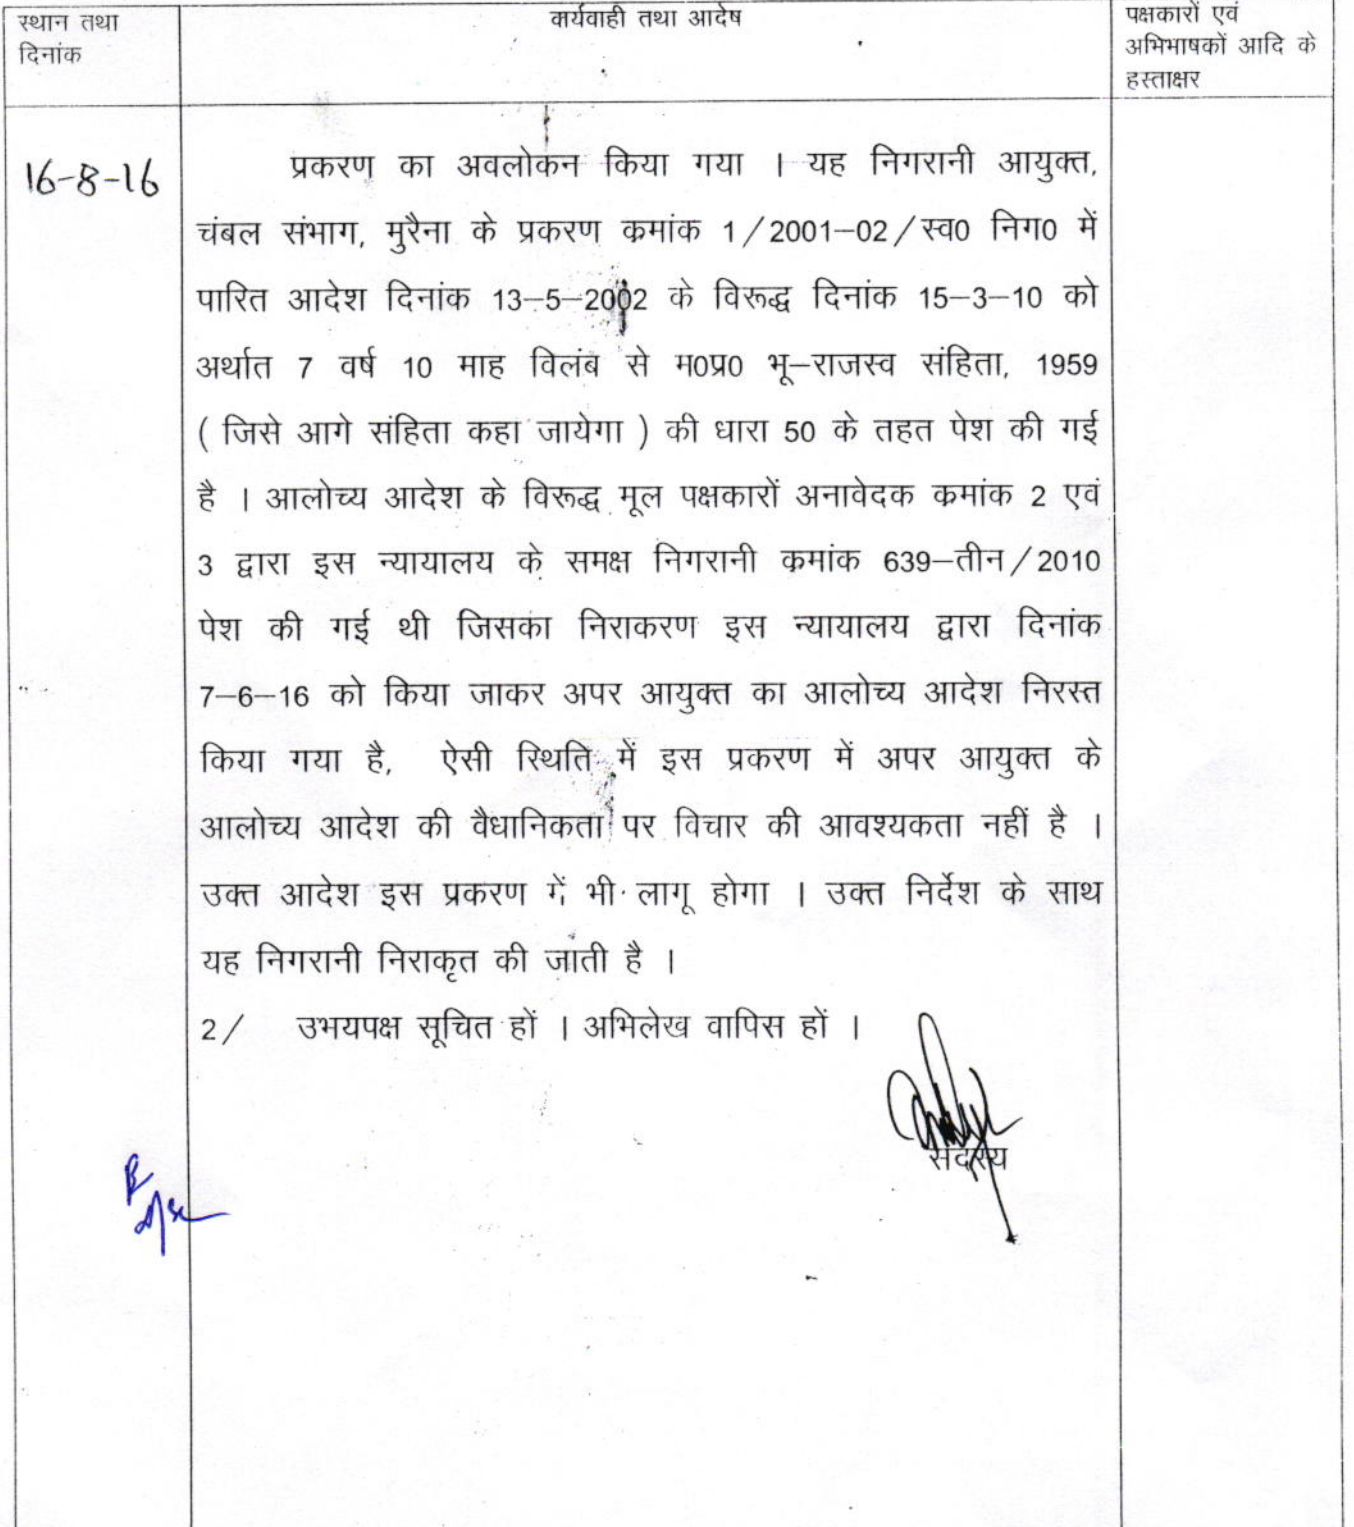 स्थान तथा
दिनांक
कार्यवाही तथा आदेष
पक्षकारों एवं
अभिभाषकों आदि के
हस्ताक्षर
16-8-16
प्रकरण का अवलोकन किया गया । यह निगरानी आयुक्त,
चंबल संभाग, मुरैना के प्रकरण कमांक 1/2001–02/स्व0 निग0 में
पारित आदेश दिनांक 13–5–2002 के विरूद्ध दिनांक 15–3–10 को
अर्थात 7 वर्ष 10 माह विलंब से म0प्र0 भू–राजस्व संहिता, 1959
( जिसे आगे संहिता कहा जायेगा ) की धारा 50 के तहत पेश की गई
है । आलोच्य आदेश के विरूद्ध मूल पक्षकारों अनावेदक कमांक 2 एवं
3 द्वारा इस न्यायालय के समक्ष निगरानी कमांक 639–तीन/2010
पेश की गई थी जिसका निराकरण इस न्यायालय द्वारा दिनांक
7–6–16 को किया जाकर अपर आयुक्त का आलोच्य आदेश निरस्त
किया गया है, ऐसी स्थिति में इस प्रकरण में अपर आयुक्त के
आलोच्य आदेश की वैधानिकता पर विचार की आवश्यकता नहीं है ।
उक्त आदेश इस प्रकरण में भी लागू होगा । उक्त निर्देश के साथ
यह निगरानी निराकृत की जाती है ।
2/ उभयपक्ष सूचित हों । अभिलेख वापिस हों ।
सदस्य